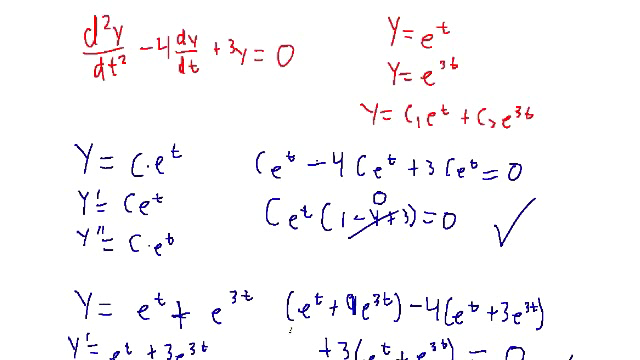 d²y/dt² - 4 dy/dt + 3y = 0
y = e^t
y = e^3t
y = c₁e^t + c₂e^3t
y = c·e^t
y' = ce^t
y'' = c·e^t
ce^t - 4ce^t + 3ce^t = 0
ce^t (1-4+3) = 0 ✓
0
y = e^t + e^3t
y' = e^t + 3e^3t
(e^t + 9e^3t) - 4(e^t + 3e^3t)
+3(e^t + e^3t) = 0